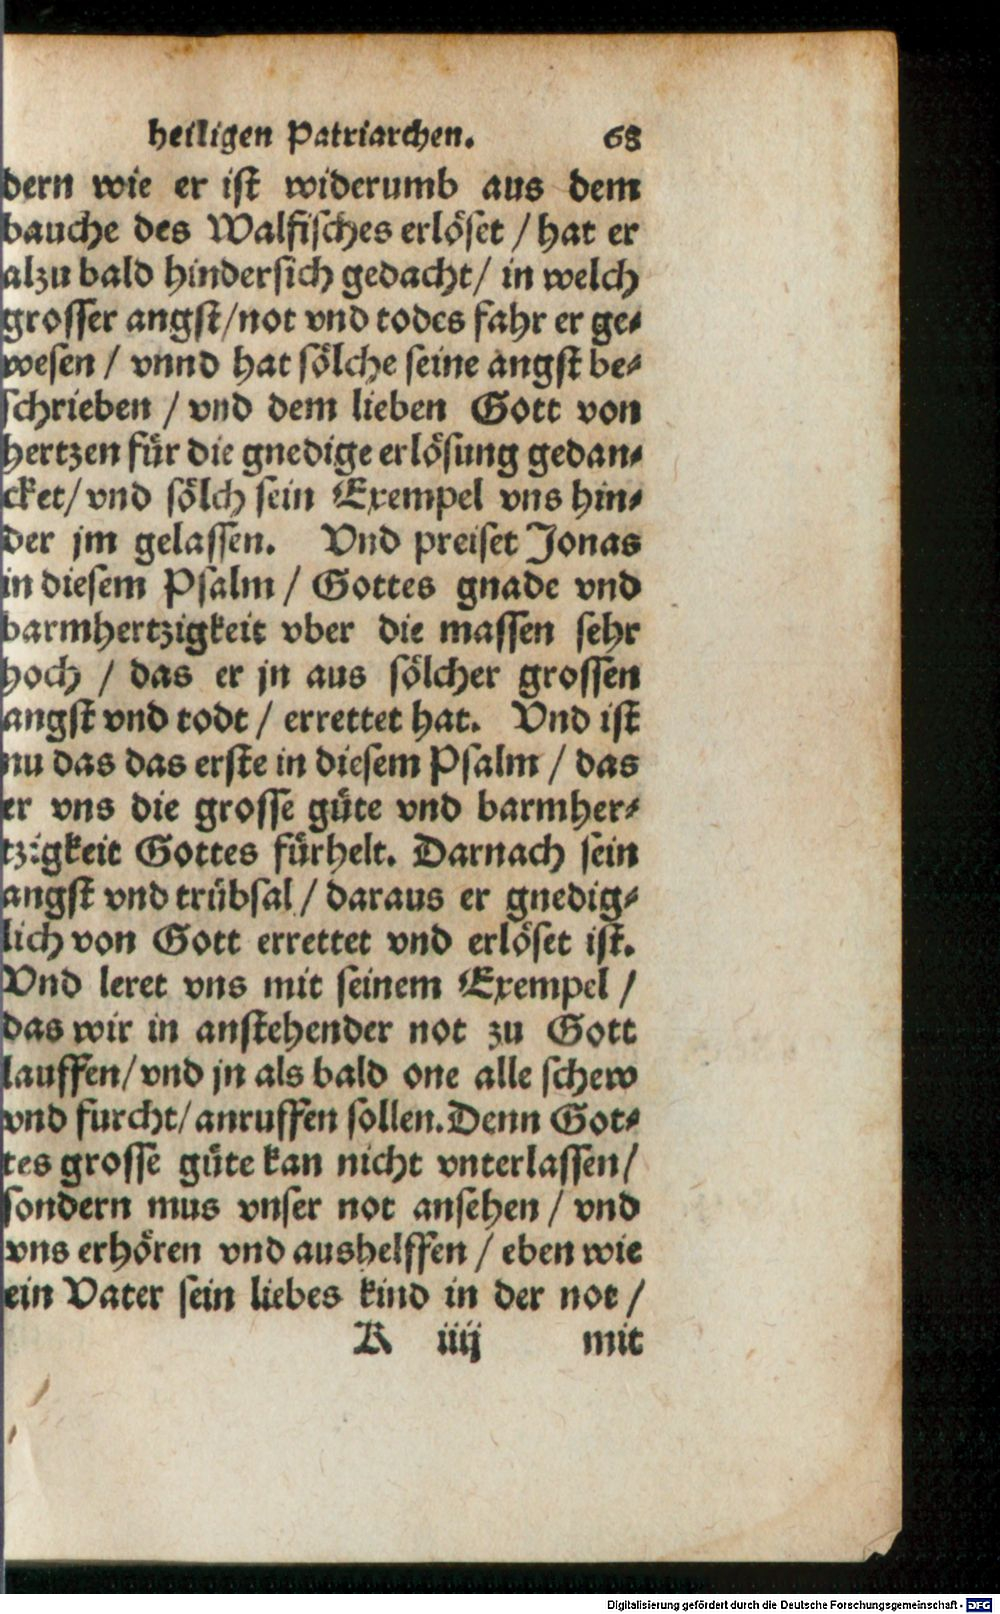 heiligen Patriarchen. 68
dern wie er ist widerumb aus dem
bauche des Walfisches erlöset / hat er
alzu bald hindersich gedacht / in welch
grosser angst / not vnd todes fahr er ge⸗
wesen / vnnd hat sölche seine angst be⸗
schrieben / vnd dem lieben Gott von
hertzen für die gnedige erlösung gedan⸗
cket / vnd sölch sein Exempel vns hin⸗
der jm gelassen. Vnd preiset Jonas
in diesem Psalm / Gottes gnade vnd
barmhertzigkeit vber die massen sehr
hoch / das er jn aus sölcher grossen
angst vnd todt / errettet hat. Vnd ist
nu das das erste in diesem Psalm / das
er vns die grosse güte vnd barmher⸗
tzigkeit Gottes fürhelt. Darnach sein
angst vnd trübsal / daraus er gnedig⸗
lich von Gott errettet vnd erlöset ist.
Vnd leret vns mit seinem Exempel /
das wir in anstehender not zu Gott
lauffen / vnd jn als bald one alle schew
vnd furcht / anruffen sollen. Denn Got⸗
tes grosse güte kan nicht vnterlassen /
sondern mus vnser not ansehen / vnd
vns erhören vnd aushelffen / eben wie
ein Vater sein liebes kind in der not /
K iiij mit
Digitalisierung gefördert durch die Deutsche Forschungsgemeinschaft - DFG